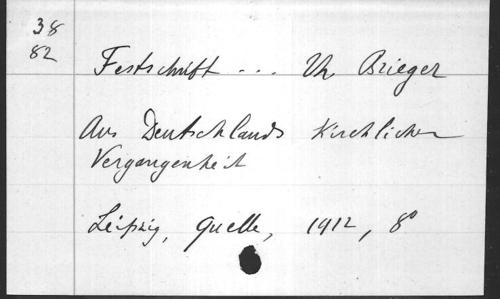 38
82
Festschrift ... Th Brieger
Aus Deutschlands Kirchlicher
Vergangenheit
Leipzig, Quelle, 1912, 8°